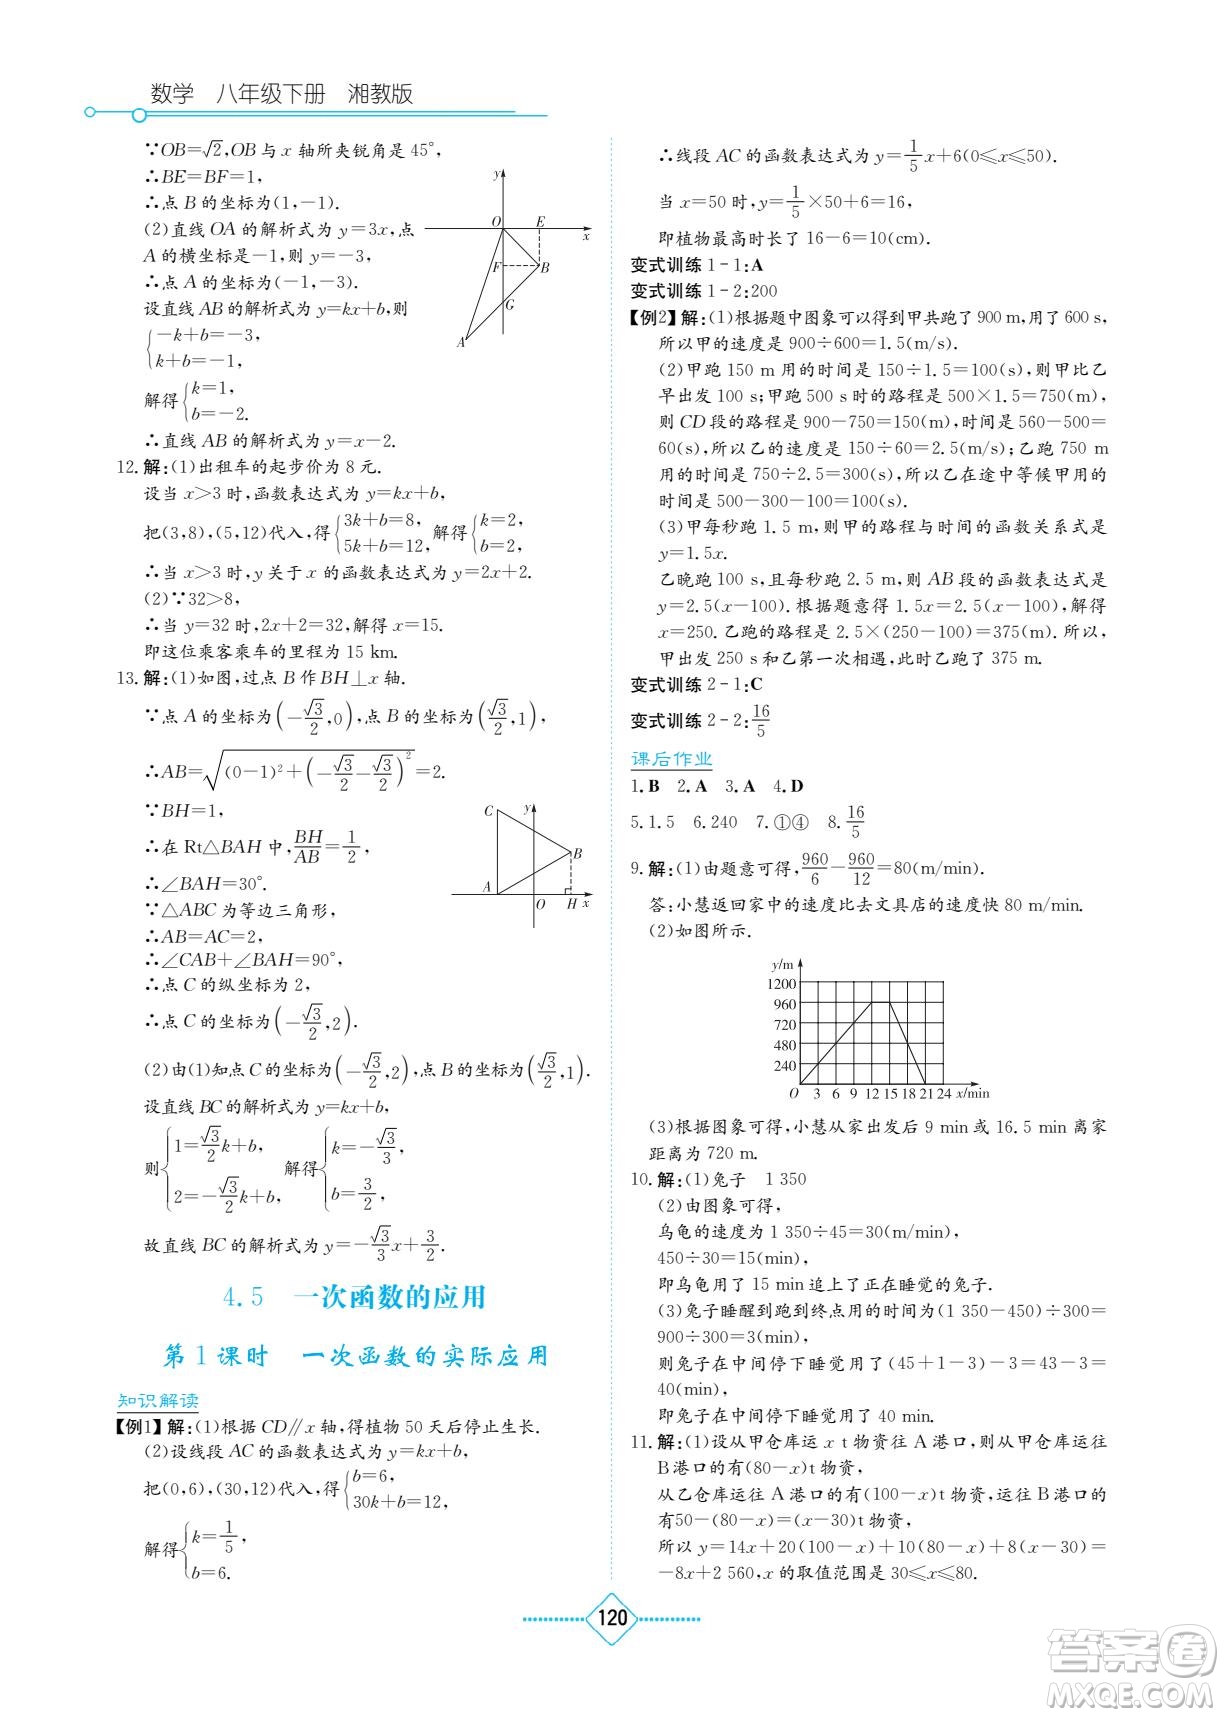 数学 八年级下册 湘教版
∵OB=√2,OB 与 x 轴所夹锐角是 45°,
∴BE=BF=1,
∴点 B 的坐标为(1,-1).
(2)直线 OA 的解析式为 y=3x,点
A 的横坐标是-1,则 y=-3,
∴点 A 的坐标为(-1,-3).
设直线AB的解析式为 y=kx+b,则
{-k+b=-3,
k+b=-1,
解得{k=1,
b=-2.
∴直线 AB 的解析式为 y=x-2.
y
O
E
x
F
B
G
A
12.解:(1)出租车的起步价为 8 元.
设当 x>3 时,函数表达式为 y=kx+b,
把(3,8),(5,12)代入,得{3k+b=8, 5k+b=12,解得{k=2, b=2,
∴当 x>3 时,y 关于 x 的函数表达式为 y=2x+2.
(2)∵32>8,
∴当 y=32 时,2x+2=32,解得 x=15.
即这位乘客乘车的里程为 15 km.
13.解:(1)如图,过点 B 作 BH⊥x 轴.
∵点 A 的坐标为(-√3/2,0),点 B 的坐标为(√3/2,1),
∴AB=√((0-1)²+(-√3/2-√3/2)²)=2.
∵BH=1,
∴在 Rt△BAH 中,BH/AB=1/2,
∴∠BAH=30°.
∵△ABC 为等边三角形,
∴AB=AC=2,
∴∠CAB+∠BAH=90°,
∴点 C 的纵坐标为 2,
∴点 C 的坐标为(-√3/2,2).
C
y
B
A
O
H
x
(2)由(1)知点 C 的坐标为(-√3/2,2),点 B 的坐标为(√3/2,1).
设直线 BC 的解析式为 y=kx+b,
则{1=√3/2k+b, 2=-√3/2k+b, 解得{k=-√3/3, b=3/2,
故直线 BC 的解析式为 y=-√3/3x+3/2.
4.5 一次函数的应用
第 1 课时 一次函数的实际应用
知识解读
【例1】解:(1)根据 CD∥x 轴,得植物 50 天后停止生长.
(2)设线段 AC 的函数表达式为 y=kx+b,
把(0,6),(30,12)代入,得{b=6, 30k+b=12,
解得{k=1/5, b=6.
∴线段 AC 的函数表达式为 y=1/5x+6(0≤x≤50).
当 x=50 时,y=1/5×50+6=16,
即植物最高时长了 16-6=10(cm).
变式训练 1-1:A
变式训练 1-2:200
【例2】解:(1)根据题中图象可以得到甲共跑了 900 m,用了 600 s,
所以甲的速度是 900÷600=1.5(m/s).
(2)甲跑 150 m 用的时间是 150÷1.5=100(s),则甲比乙
早出发 100 s;甲跑 500 s 时的路程是 500×1.5=750(m),
则 CD 段的路程是 900-750=150(m),时间是 560-500=
60(s),所以乙的速度是 150÷60=2.5(m/s);乙跑 750 m
用的时间是 750÷2.5=300(s),所以乙在途中等候甲用的
时间是 500-300-100=100(s).
(3)甲每秒跑 1.5 m,则甲的路程与时间的函数关系式是
y=1.5x.
乙晚跑 100 s,且每秒跑 2.5 m,则 AB 段的函数表达式是
y=2.5(x-100). 根据题意得 1.5x=2.5(x-100),解得
x=250. 乙跑的路程是 2.5×(250-100)=375(m). 所以,
甲出发 250 s 和乙第一次相遇,此时乙跑了 375 m.
变式训练 2-1:C
变式训练 2-2:16/5
课后作业
1.B 2.A 3.A 4.D
5.1.5 6.240 7.①④ 8.16/5
9.解:(1)由题意可得,960/6-960/12=80(m/min).
答:小慧返回家中的速度比去文具店的速度快 80 m/min.
(2)如图所示.
y/m
1200
960
720
480
240
O 3 6 9 12 15 18 21 24 x/min
(3)根据图象可得,小慧从家出发后 9 min 或 16.5 min 离家
距离为 720 m.
10.解:(1)兔子 1 350
(2)由图象可得,
乌龟的速度为 1 350÷45=30(m/min),
450÷30=15(min),
即乌龟用了 15 min 追上了正在睡觉的兔子.
(3)兔子睡醒到跑到终点用的时间为(1 350-450)÷300=
900÷300=3(min),
则兔子在中间停下睡觉用了(45+1-3)-3=43-3=
40(min),
即兔子在中间停下睡觉用了 40 min.
11.解:(1)设从甲仓库运 x t 物资往 A 港口,则从甲仓库运往
B港口的有(80-x)t 物资,
从乙仓库运往 A 港口的有(100-x)t 物资,运往 B 港口的
有50-(80-x)=(x-30)t 物资,
所以 y=14x+20(100-x)+10(80-x)+8(x-30)=
-8x+2 560,x 的取值范围是 30≤x≤80.
120
答案卷
MXQE.COM